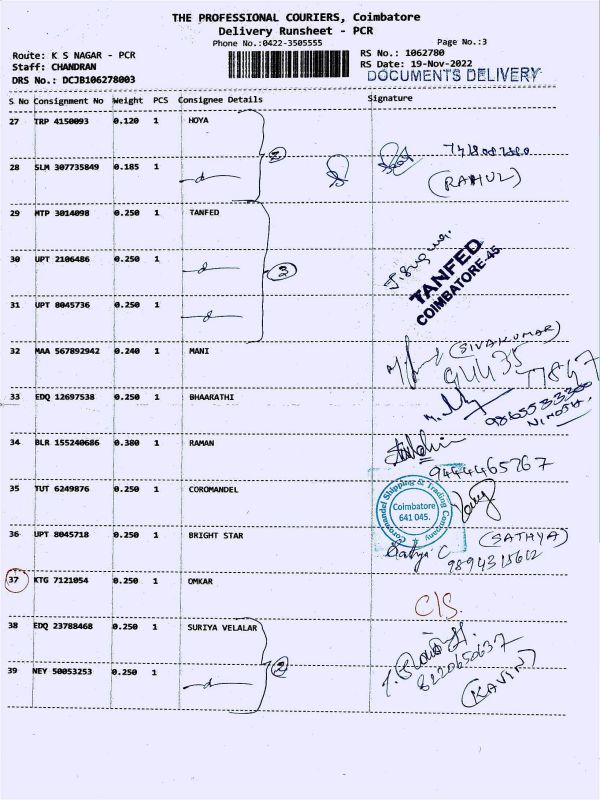 THE PROFESSIONAL COURIERS, Coimbatore
Delivery Runsheet - PCR
Phone No.:0422-3505555
Page No.:3
Route: K S NAGAR - PCR
RS No.: 1062780
Staff: CHANDRAN
RS Date: 19-Nov-2022
DRS No.: DCJB106278003
DOCUMENTS DELIVERY
S No Consignment No Weight PCS Consignee Details Signature
27 TRP 4150093 0.120 1 HOYA
2
28 SLM 307735849 0.185 1
(RAHUL)
29 MTP 3014098 0.250 1 TANFED
30 UPT 2106486 0.250 1
3
TANFED
COIMBATORE-45
31 UPT 8045736 0.250 1
32 MAA 567892942 0.240 1 MANI
(SIVAKUMAR)
33 EDQ 12697538 0.250 1 BHAARATHI
34 BLR 155240686 0.380 1 RAMAN
9444465767
35 TUT 6249876 0.250 1 COROMANDEL
Coromandel Shipping & Trading Company
Coimbatore
641 045.
36 UPT 8045718 0.250 1 BRIGHT STAR
(SATHYA)
Sathya C
9894315612
37 KTG 7121054 0.250 1 OMKAR
C/S.
38 EDQ 23788468 0.250 1 SURIYA VELALAR
2
8220650637
39 NEY 50053253 0.250 1
(KAVIN)